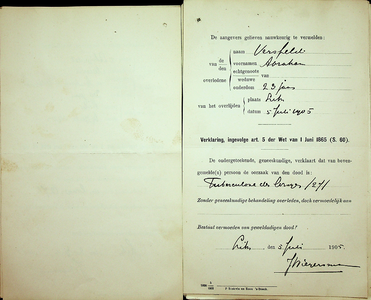 De aangevers gelieven nauwkeurig te vermelden:
naam Versfeld
van de voornamen Abraham
den echtgenoote van
overledene weduwe
ouderdom 23 jaar
van het overlijden plaats
datum 5 Juli 1905
Verklaring, ingevolge art. 5 der Wet van 1 Juni 1865 (S. 60).
De ondergeteekende, geneeskundige, verklaart dat van boven-
gemelde(n) persoon de oorzaak van den dood is:
Tuberculose der longen
Zonder geneeskundige behandeling overleden, doch vermoedelijk aan
Bestaat vermoeden van gewelddadigen dood?
den 5 Juli 1905.